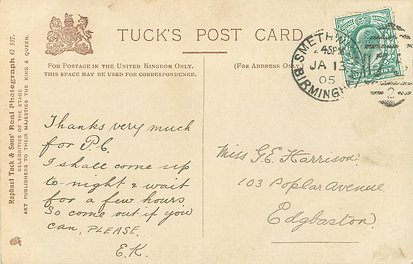 TUCK'S POST CARD
FOR POSTAGE IN THE UNITED KINGDOM ONLY.
THIS SPACE MAY BE USED FOR CORRESPONDENCE.
(For Address Only.)
Raphael Tuck & Sons' Real Photograph G 137.
CELEBRITIES OF THE STAGE
ART PUBLISHERS TO THEIR MAJESTIES THE KING & QUEEN.
BIRMINGH
JA 13
05
2
Thanks very much
for P.C.
I shall come up
to-night & wait
for a few hours
So come out if you
can, PLEASE.
E.K.
Miss G.E. Harrison.
103 Poplar Avenue.
Edgbaston.